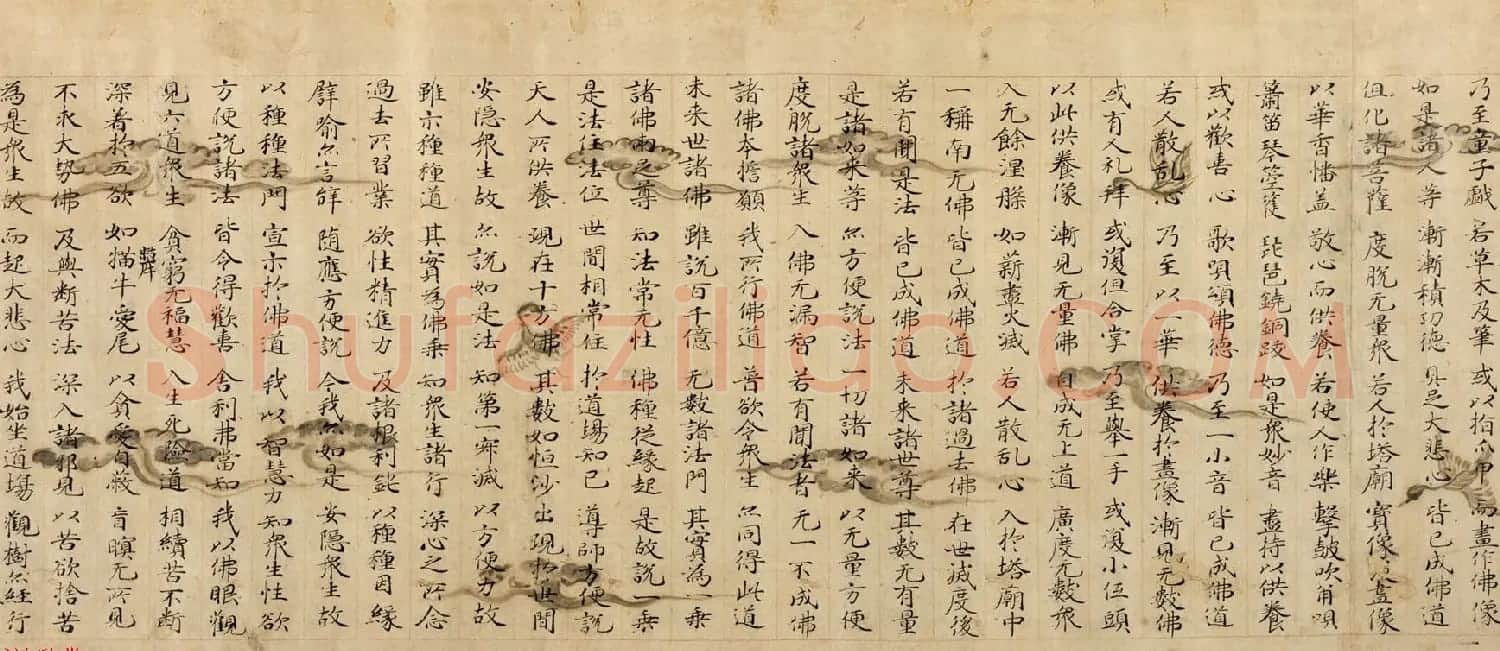 乃至童子戲 若草木及筆 或以指爪甲 而畫作佛像
如是諸人等 漸漸積功德 具足大悲心 皆已成佛道
但化諸菩薩 度脫无量衆 若人於塔廟 寶像及畫像
以華香幡盖 敬心而供養 若使人作樂 擊皷吹角唄
簫笛琴箜篌 琵琶鐃銅鈸 如是衆妙音 盡持以供養
或以歡喜心 歌唄頌佛德 乃至一小音 皆已成佛道
若人散乱心 乃至以一華 供養於畫像 漸見无數佛
或有人礼拜 或復但合掌 乃至舉一手 或復小伍頭
以此供養像 漸見无量佛 自成无上道 廣度无數衆
入无餘涅槃 如薪盡火滅 若人散乱心 入於塔廟中
一稱南无佛 皆已成佛道 於諸過去佛 在世滅度後
若有聞是法 皆已成佛道 未来諸世尊 其數无有量
是諸如来等 亦方便說法 一切諸如来 以无量方便
度脫諸衆生 入佛无漏智 若有聞法者 无一不成佛
諸佛本誓願 我所行佛道 普欲令衆生 亦同得此道
未来世諸佛 雖說百千億 无數諸法門 其實為一乘
諸佛兩足尊 知法常无性 佛種從緣起 是故說一乘
是法住法位 世間相常住 於道場知已 導師方便說
天人所供養 現在十方佛 其數如恒沙 出現於世間
安隱衆生故 亦說如是法 知第一寂滅 以方便力故
雖示種種道 其實為佛乘 知衆生諸行 深心之所念
過去所習業 欲性精進力 及諸根利鈍 以種種因緣
譬喻亦言辭 隨應方便說 今我亦如是 安隱衆生故
以種種法門 宣示於佛道 我以智慧力 知衆生性欲
方便說諸法 皆令得歡喜 舍利弗當知 我以佛眼觀
見六道衆生 貧窮无福慧 入生死險道 相續苦不斷
深著於五欲 如猫牛愛尾 以貪愛自蔽 盲瞑无所見
不求大勢佛 及與斷苦法 深入諸邪見 以苦欲捨苦
為是衆生故 而起大悲心 我始坐道場 觀樹亦經行
Shufaziliao.COM